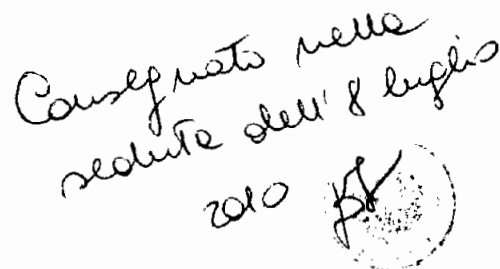 Consegnato nella
seduta dell'8 luglio
2010